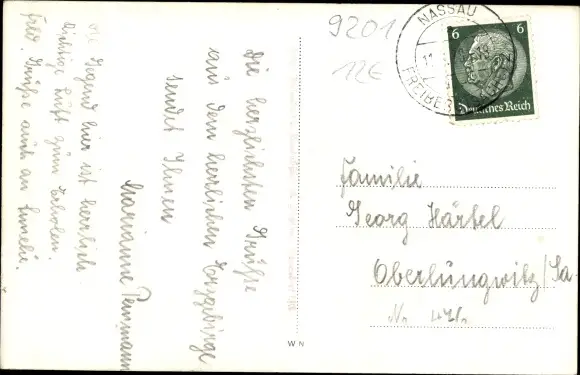 9201
12€
NASSAU
FREIBERG
6 6
Deutsches Reich
Familie
Georg Härtel
Oberlungwitz/Sa.
Nr.
Die herzlichsten Grüße
aus dem herrlichen Erzgebirge
sendet Ihnen
Marianne
Die Gegend hier ist herrlich
richtige Luft zum Erholen.
Frdl. Grüße auch an
W N